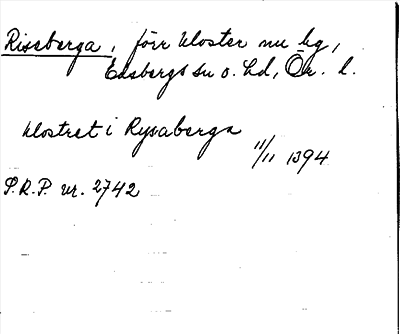 Riseberga, förr kloster nu hg,
Edsbergs sn o. hd, Ör. l.
klostret i Rysaberga
11/11 1394
S.R.P. nr. 2742